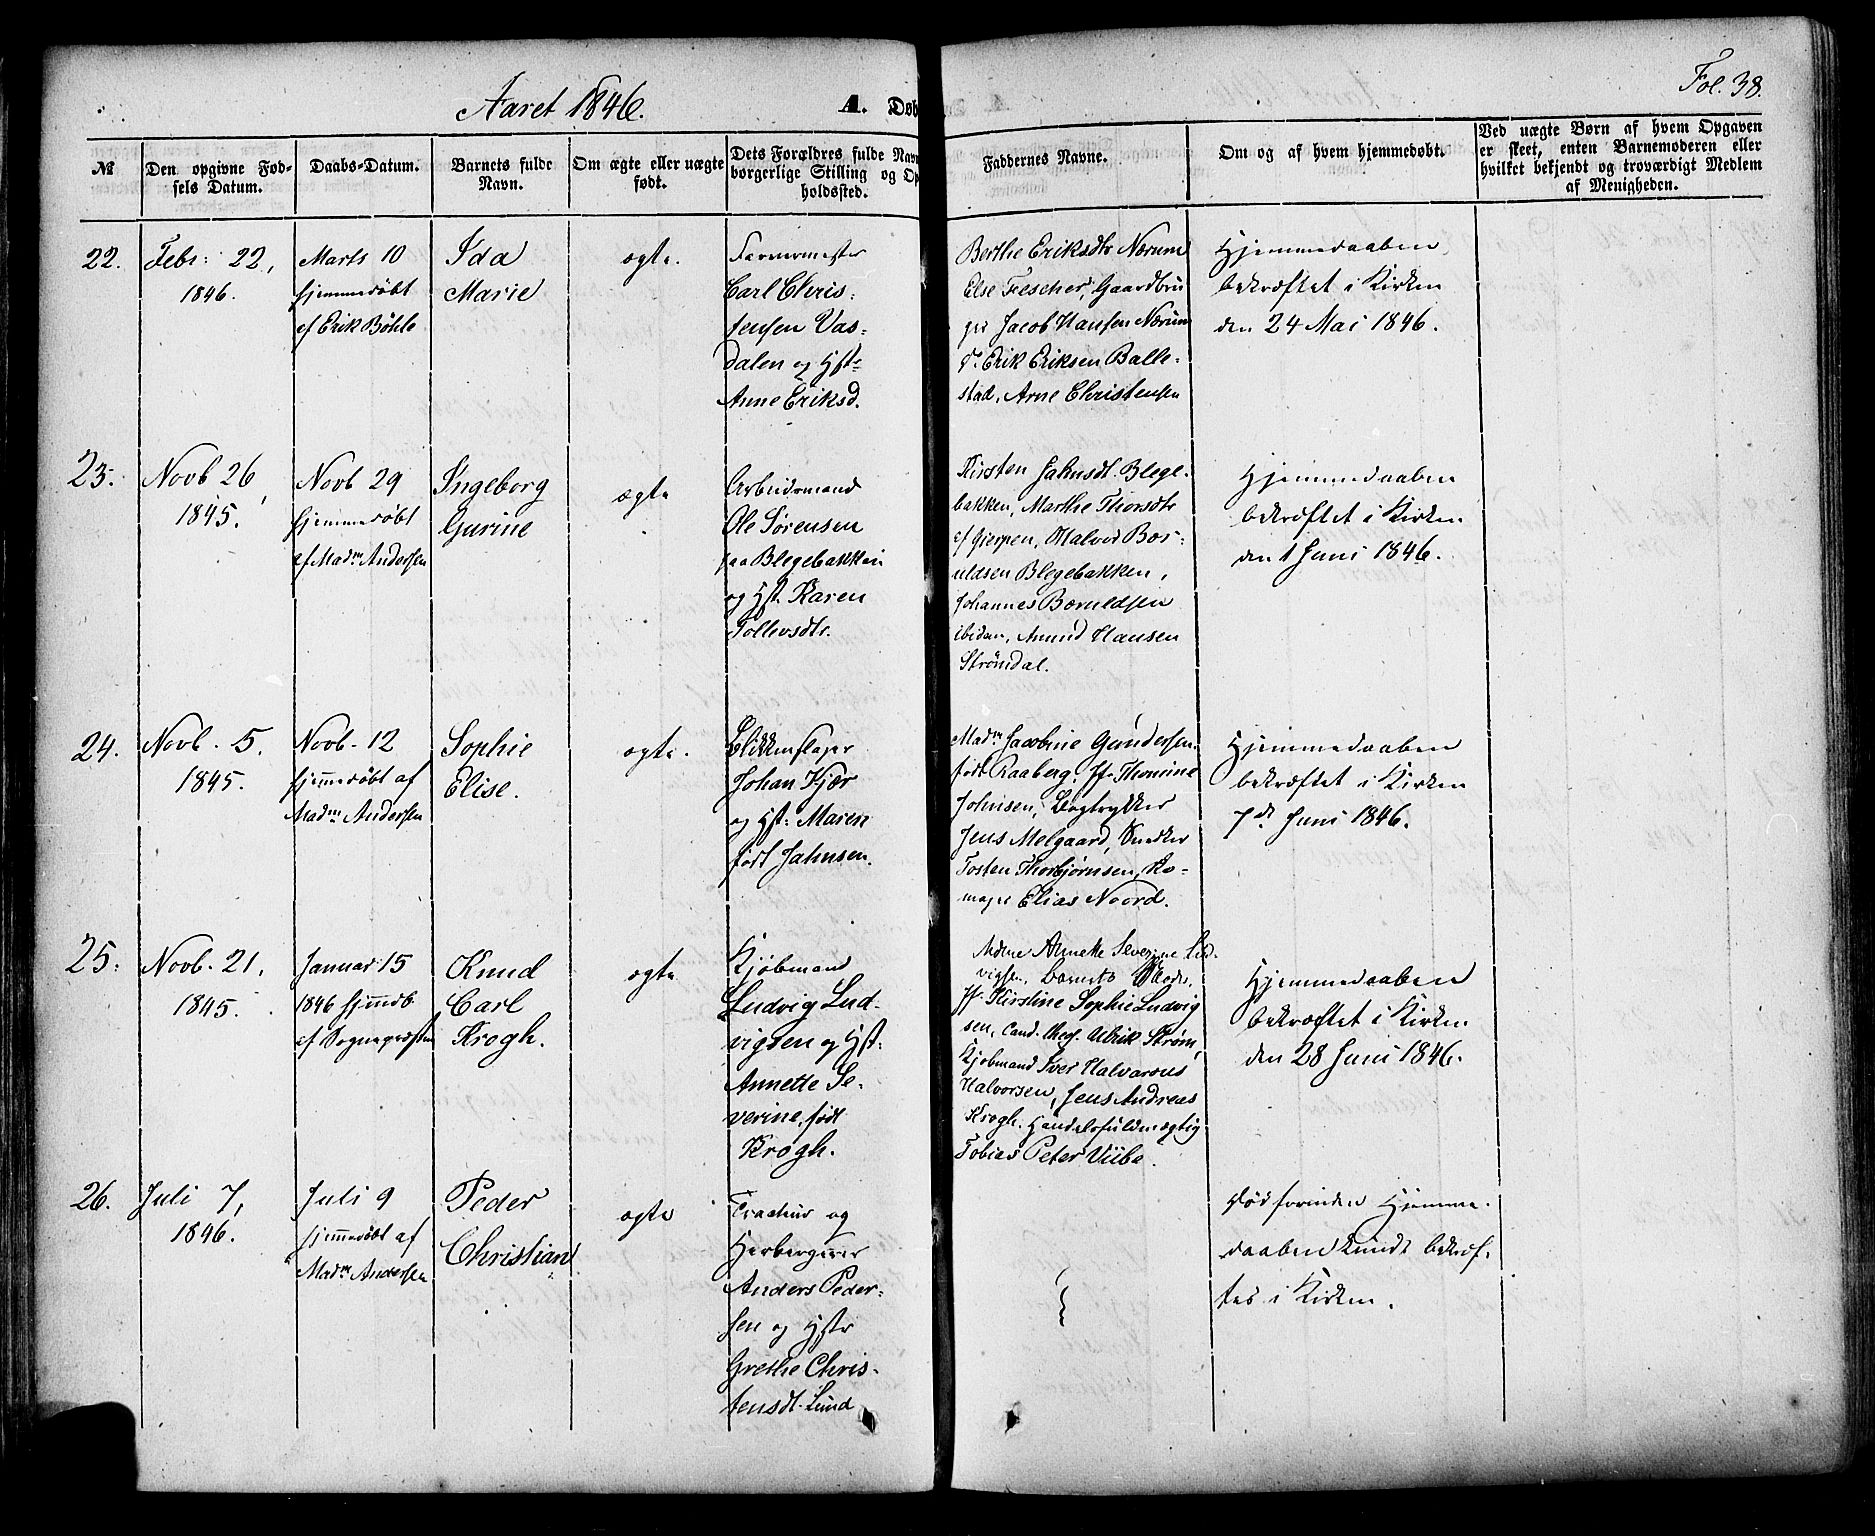 Aaret 1846.
A. Døb
Fol. 38.
№
Den opgivne Fød-
sels Datum.
Daabs-Datum.
Barnets fulde
Navn.
Om ægte eller uægte
født.
Dets Forældres fulde Navn
borgerlige Stilling og Op
holdssted.
Faddernes Navne.
Om og af hvem hjemmedøbt.
Ved uægte Børn af hvem Opgaven
er skeet, enten Barnemoderen eller
hvilket bekjendt og troværdigt Medlem
af Menigheden.
22.
Febr: 22,
1846.
Marts 10
hjemmedøbt
af Erik Bøhle
Ida
Marie
ægte.
Farvermester
Carl Chris-
tensen Vas-
dalen og Hstr
Anne Eriksd.
Berthe Eriksdtr Nærum
Else Fescher, Gaardbru
ger Jacob Hansen Nærum
do Erik Eriksen Balle-
stad, Arne Christensen
Hjemmedaaben
bekræftet i Kirken
den 24 Mai 1846.
23.
Novb 26,
1845.
Novb 29
hjemmedøbt
af Madm Andersen
Ingeborg
Gurine
ægte
Arbeidsmand
Ole Sørensen
paa Blegebakken
og Hst. Karen
Tollevsdtr.
Kirsten Jahnsdt. Blege-
bakken, Marthe Thorsdtr
af Gjerpen, Halvor Bor-
uldsen Blegebakken,
Johannes Boruldsen
ibidem, Amund Hansen
Strømdal.
Hjemmedaaben
bekræftet i Kirken
den 1 Juni 1846.
24.
Novb. 5.
1845.
Novb. 12
hjemmedøbt af
Madm Andersen
Sophie
Elise.
ægte.
Blikkenslager
Johan Kjær
og Hst: Maren
født Jahnsen.
Madm Jacobine Gundersen
født Raaberg, Jf. Thomine
Johnsen, Bogtrykker
Jens Melgaard, Snedker
Tosten Thorbjørnsen, Ko-
mager Elias Noord.
Hjemmedaaben
bekræftet i Kirken
7de Juni 1846.
25.
Novb. 21.
1845.
Januar 15
1846 hjemmdb.
af Sognepræsten
Knud
Carl
Krogh.
ægte
Kjøbmand
Ludvig Lud-
vigsen og Hst:
Annette Se-
verine, født
Krogh.
Mdme Annette Severine Lud-
vigsen, Barnets Moder,
Jf. Kirstine Sophie Ludvig
sen, Cand. theol. Ulrik Strøm,
Kjøbmand Iver Halvorsens
Halvorsen, Jens Andreas
Krogh. Handelsfuldmægtig
Tobias Peter Viibe.
Hjemmedaaben
bekræftet i Kirken
den 28 Juni 1846.
26.
Juli 7,
1846.
Juli 9
hjemmedøbt af
Madm Andersen
Peder
Christian
ægte
Tracteur og
Herbergerer
Anders Peder-
sen og Hstr
Grethe Chris-
tensdt. Lund
Død forinden Hjemme-
daaben kunde bekræf-
tes i Kirken.